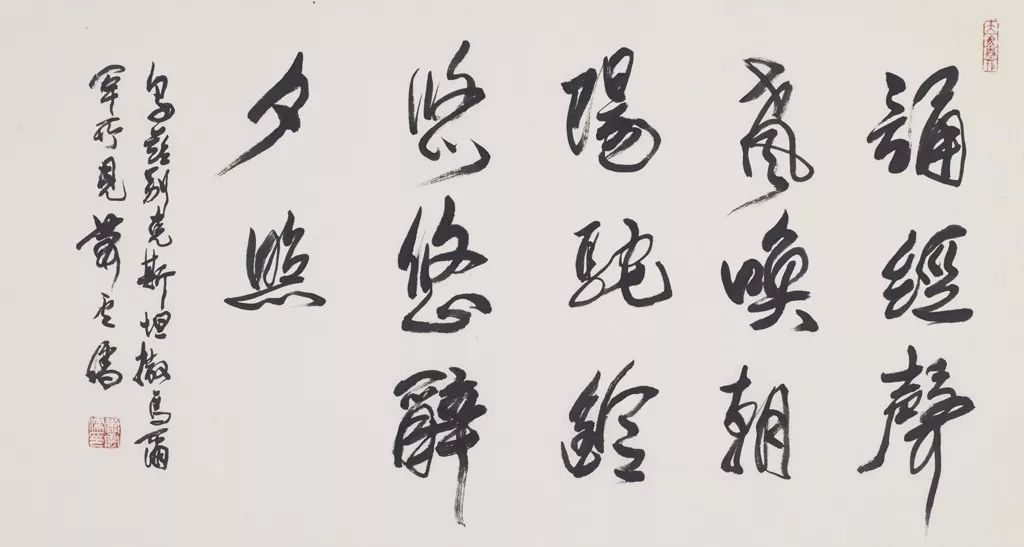 誦經聲
喚朝
陽駝鈴
悠悠辭
夕照
烏茲別克斯坦撒馬爾
罕所見蕭云儒